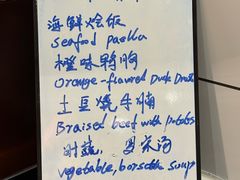 海鲜烩饭
seafood paella
橙味鸭胸
Orange-flavored Duck Breast
土豆烧牛腩
Braised beef with potatoes
时蔬, 罗宋汤
vegetable, borsch soup